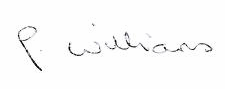 P. Williams